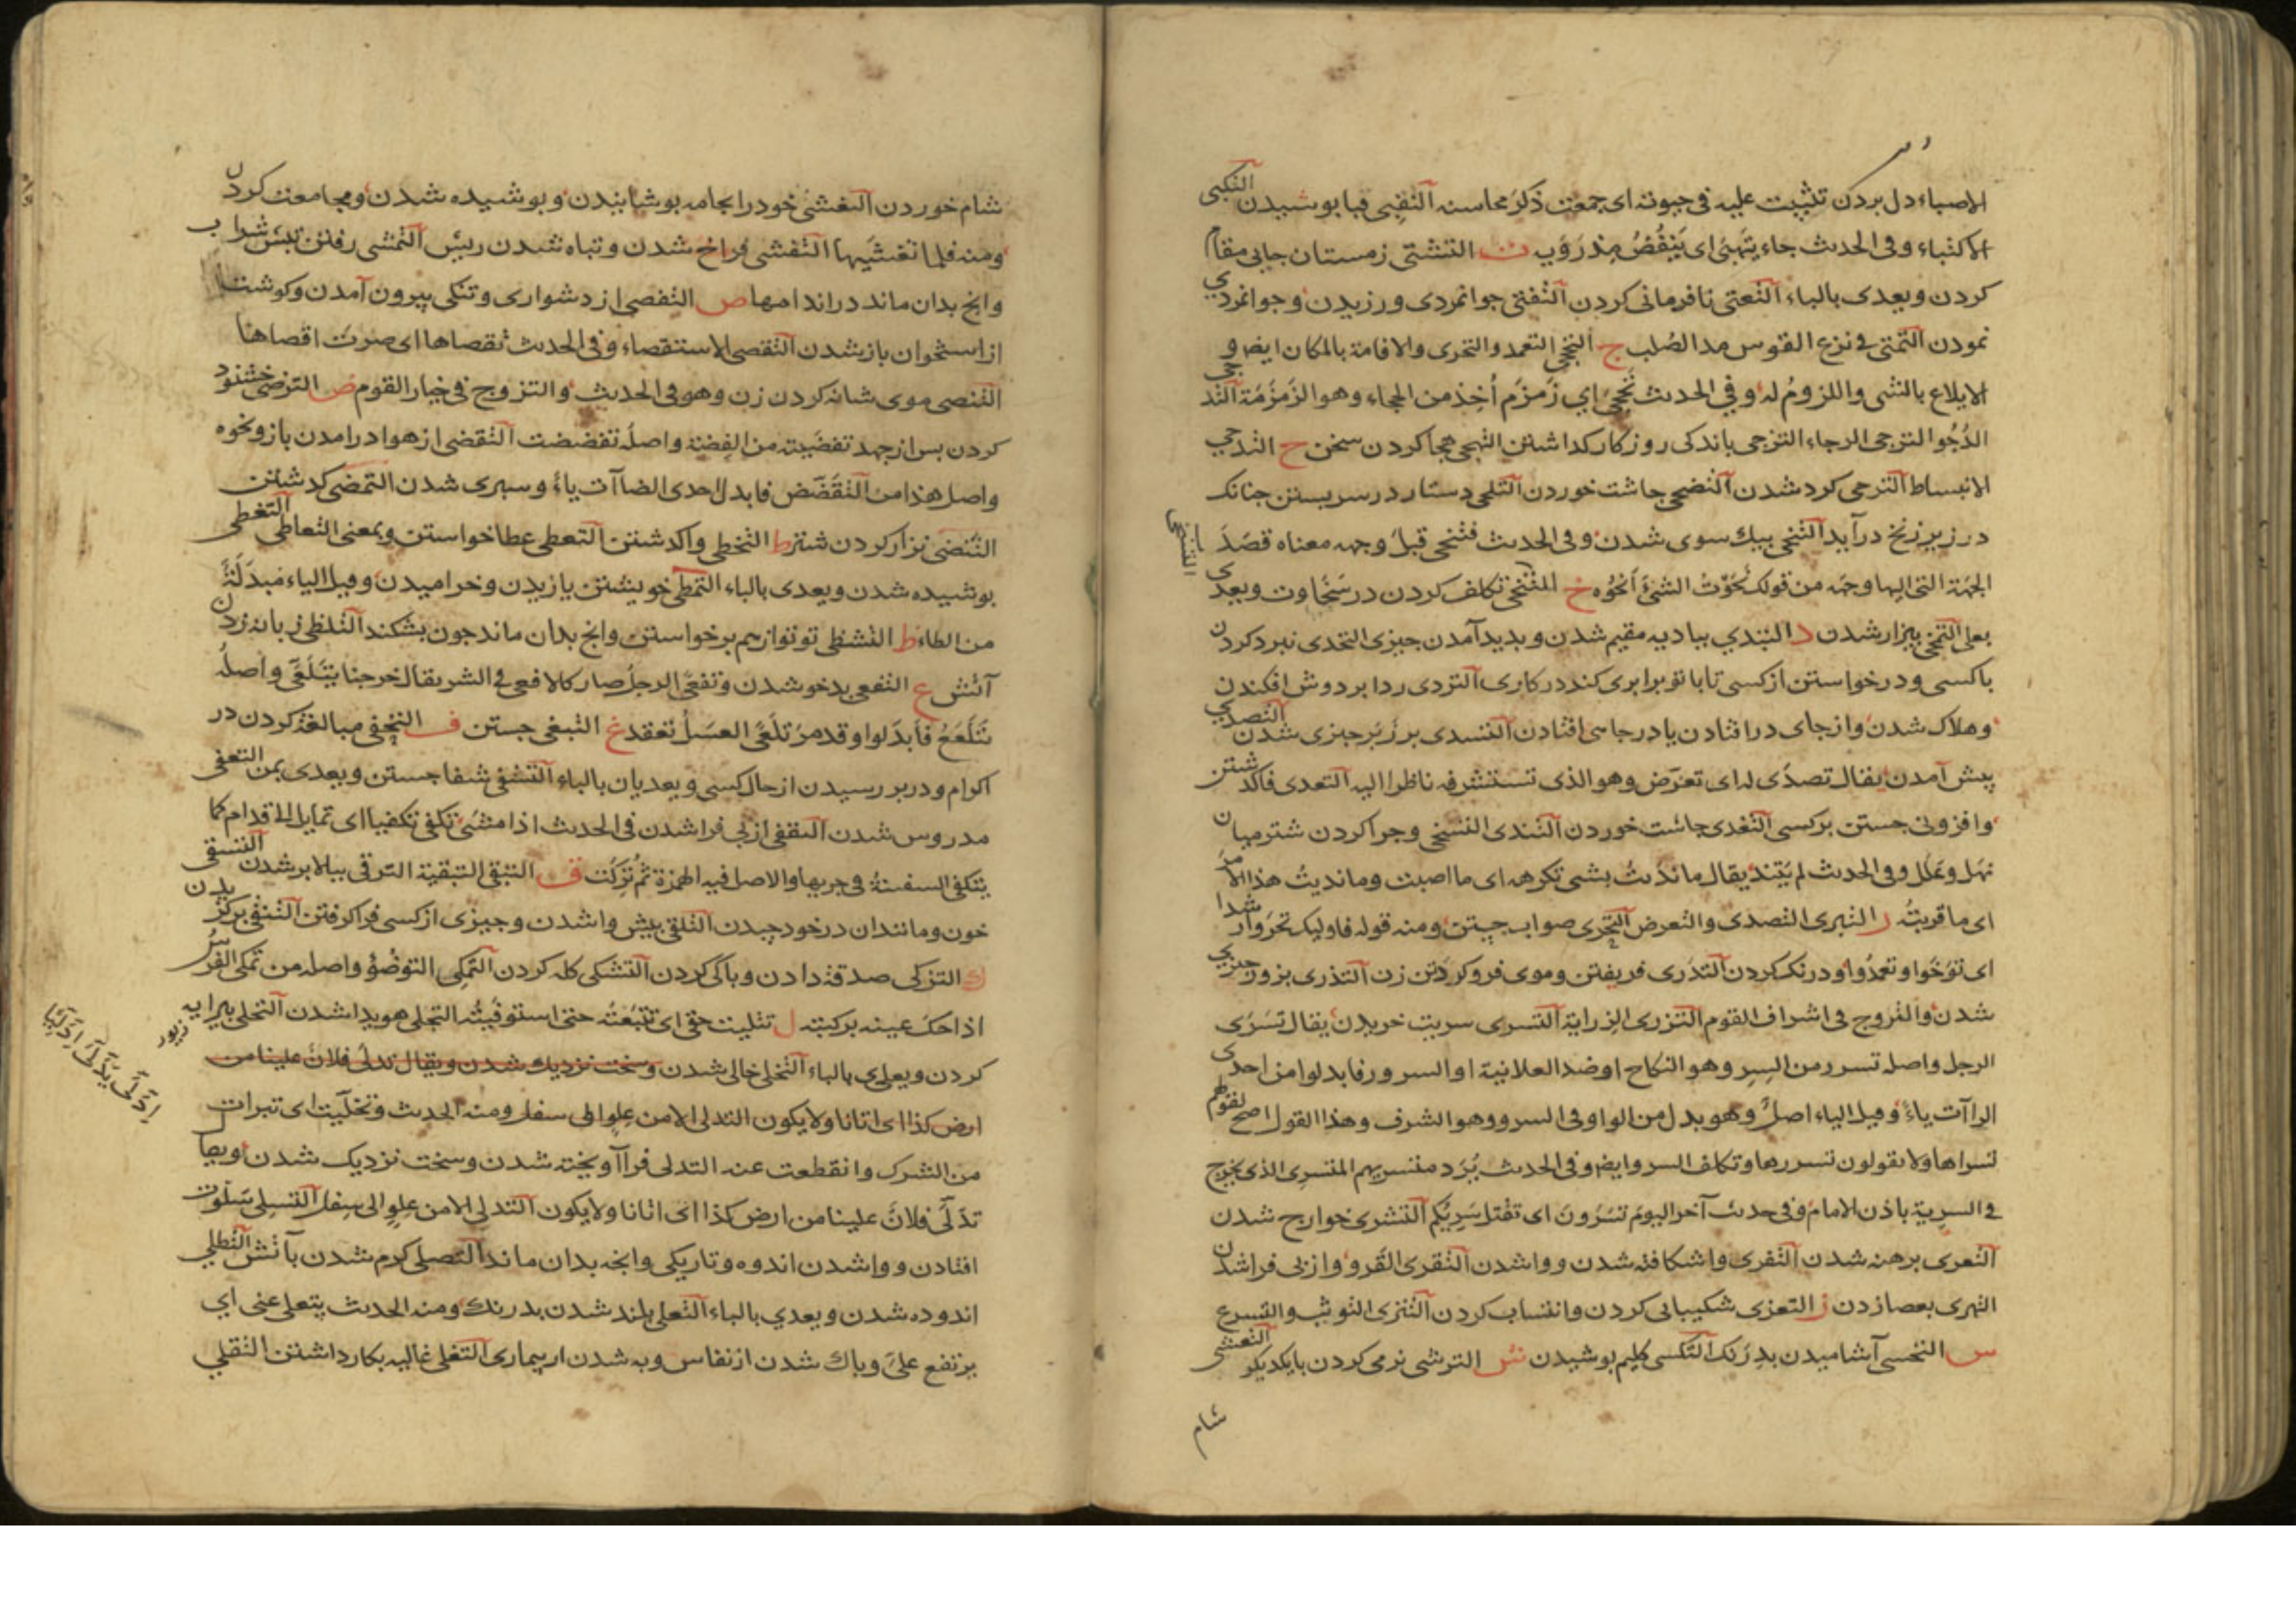 الاصباء دل بردن تثبیت علیه فی حیوته ای جمعت ذکر محاسنه التقبی قبا بوشیدن التکبی
الاکتباء وفی الحدث جاء یتهبی ای ینفض مذرویه ت التشتی زمستان جایی مقام
کردن ویعدی بالباء التعتی نافرمانی کردن التفتی جوانمردی ورزیدن وجوانمردی
نمودن التمتی فی نزع القوس مد الصلب ج التحجی التعمد والتحری والاقامة بالمکان ایض و
الایلاع بالشی واللزوم له وفی الحدث تحجی ای زمزم اخذ من الحجاء وهو الزمزمة التدجی
الدجو الترجی الرجاء التزجی باندکی روزکار کداشتن التهجی هجا کردن سخن ح التدحی
الانبساط الترحی کرد شدن التضحی جاشت خوردن التلحی دستار در سر بستن جنانک
در زیر زنخ درآید التنحی بیک سوی شدن وفی الحدث فتنحی قبل وجهه معناه قصد
الجهة التی الیها وجهه من قولک نحوت الشئ انحوه خ التسخی تکلف کردن در سخاوت ویعدی
بعلی التمخی بیزار شدن د التبدی ببادیه مقیم شدن وبدید آمدن جیزی التحدی نبرد کردن
باکسی ودرخواستن ازکسی تا با تو برابری کند در کاری التردی ردا بر دوش افکندن
وهلاک شدن واز جای در افتادن یا در جاهی افتادن التسدی بر زبر جیزی شدن التصدی
بیش آمدن یقال تصدی له ای تعرض وهو الذی تستشرفه ناظرا الیه التعدی فاکذشتن
وافزونی جستن برکسی التغدی جاشت خوردن التندی التسخی وجرا کردن شتر میان
نهل وعلل وفی الحدث لم یتند یقال ما ندیت بشی تکرهه ای ما اصبت وما ندیت هذا الامر
ای ما قربته ر التبری التصدی والتعرض التحری صواب جستن ومنه قوله فاولیک تحروا رشدا
ای توخوا وتعمدوا ودرنک کردن التدری فریفتن وموی فرو کردن زن التذری بزور جیزی
شدن والتزوج فی اشراف القوم التزری الزرایة التسری سریت خریدن یقال تسری
الرجل واصله تسرر من السر وهو النکاح او ضد العلانیة او السرور فابدلوا من احدی
الراآت یاء وقیل الیاء اصل وهو بدل من الواو وفی السرو وهو الشرف وهذا القول اصح لقولهم
تسراها ولا یقولون تسررها وتکلف السرو ایض وفی الحدث یرد متسریهم المتسری الذی یخرج
فی السریة باذن الامام وفی حدث آخر الیوم تسرون ای تقتل سریکم التشری خوارج شدن
التعری برهنه شدن التفری واشکافته شدن وواشدن التقری القرو واز بی فراشدن
التهری بعصا زدن ز التعزی شکیبایی کردن وانتساب کردن التنزی التوثب والتسرع
س التحسی آشامیدن بدرنک التکسی کلیم بوشیدن ش الترشی نرمی کردن با یکدیکر التعشی
شام
شام خوردن التغشی خود را بجامه بوشانیدن وبوشیده شدن ومجامعت کردن
ومنه فلما تغشیها التفشی فراخ شدن وتباه شدن ریش التمشی رفتن
وانج بدان ماند در اندامها ص التفصی از دشواری وتنکی بیرون آمدن وکوشت
از استخوان باز شدن التقصی الاستقصاء وفی الحدث تقصاها ای صرت اقصاها
التنصی موی شانه کردن زن وهو فی الحدیث والتزوج فی خیار القوم ض الترضی خشنود
کردن بس از جهد تفضیته من الفضة واصله تفضضت التقضی از هوا درآمدن باز ونحوه
واصل هذا من التقضض فابدل احدی الضاآت یاء وسبری شدن التمضی کذشتن
التنضی نزار کردن شتر ط التخطی واکذشتن التعطی عطا خواستن وبمعنی التعاطی التغطی
بوشیده شدن ویعدی بالباء التمطی خویشتن یازیدن وخرامیدن وقیل الیاء مبدلة
من الطاء ظ التشظی تو تو از هم برخواستن وانج بدان ماند جون بشکند التلظی زبانه زدن
آتش ع التفعی بدخو شدن وتفعی الرجل صار کالافعی فی الشر یقال خرجنا نتلعی واصله
نتلعع فابدلوا وقد مر تلعی العسل تعقد غ التبغی جستن ف التحفی مبالغة کردن در
اکرام ودر بررسیدن از حال کسی ویعدیان بالباء التشفی شفا جستن ویعدی بمن التعفی
مدروس شدن التقفی از بی فرا شدن فی الحدث اذا مشی تکفی تکفیا ای تمایل الی قدام کما
یتکفی السفینة فی جریها والاصل فیه الهمزة ثم ترکت ق التبقی التبقیة الترقی ببالا بر شدن التسقی
خون ومانند آن در خود جیدن التلقی بیش واشدن وجیزی از کسی فرا کرفتن التنقی برکزیدن
ک التزکی صدقه دادن وباکی کردن التشکی کله کردن التمکی التوضؤ واصله من تمکی الفرس
اذا حک عینه برکبته ل تتلیت حقی ای تتبعته حتی استوفیته التجلی هویدا شدن التحلی بیرایه زیور
کردن ویعدی بالباء التخلی خالی شدن وسخت نزدیک شدن ویقال تدلی فلان علینا من
ارض کذا ای اتانا ولا یکون التدلی الا من علو الی سفل ومنه الحدیث وتخلیت ای تبرات
من الشرک وانقطعت عنه التدلی فرا آویخته شدن وسخت نزدیک شدن ویقال
تدلی فلان علینا من ارض کذا ای اتانا ولا یکون التدلی الا من علو الی سفل التسلی سلوت
افتادن وواشدن اندوه وتاریکی وانجه بدان ماند التصلی کرم شدن بآتش التطلی
اندوده شدن ویعدی بالباء التعلی بلند شدن بدرنک ومنه الحدیث یتعلی عنی ای
یرتفع علی وباک شدن از نفاس وبه شدن از بیماری التغلی غالیه بکار داشتن التقلی
ادلی یدلی ادلیا